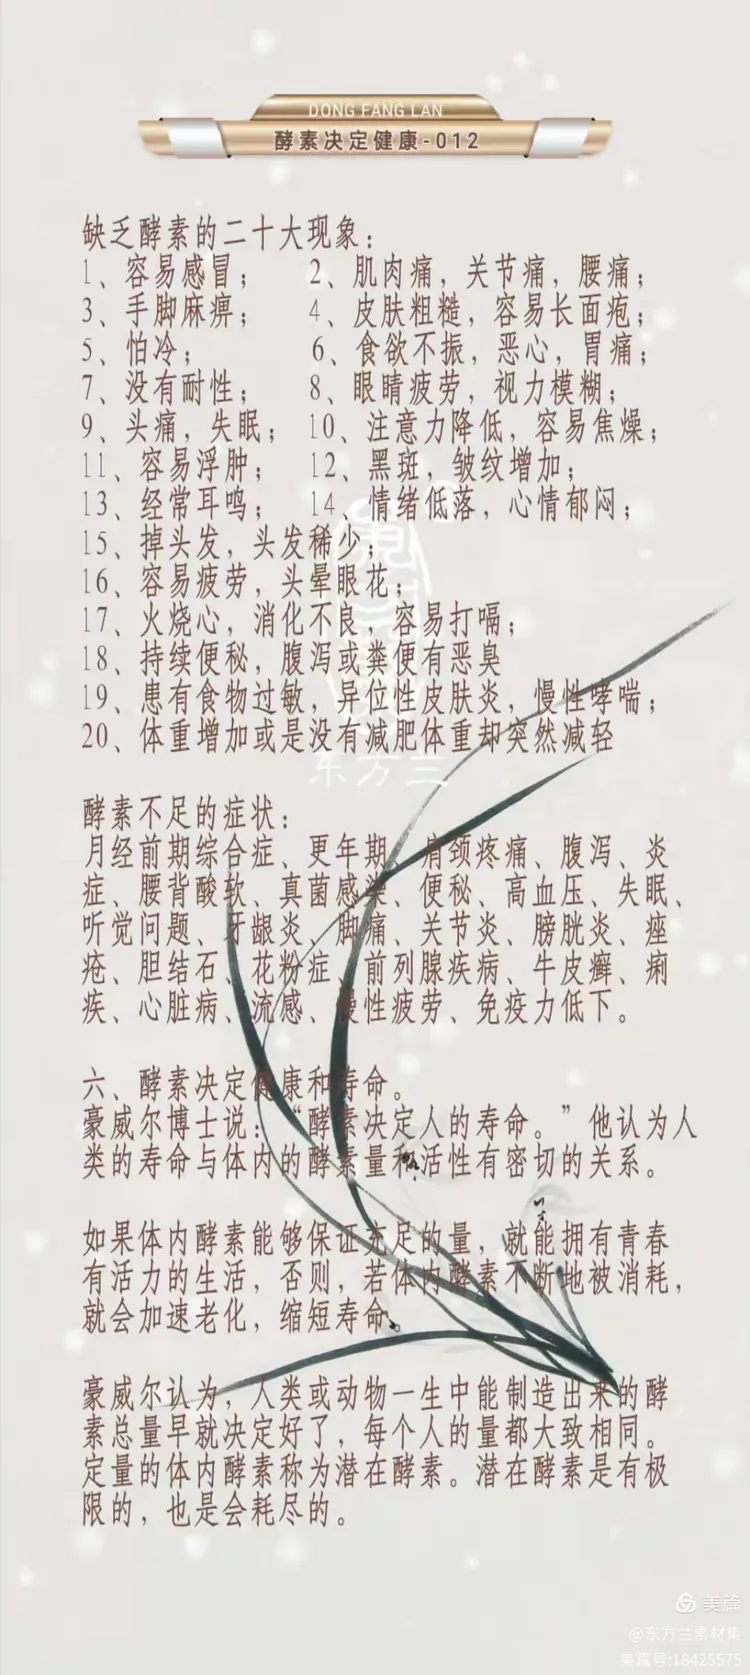 DONG FANG LAN
酵素决定健康-012
缺乏酵素的二十大现象：
1、容易感冒； 2、肌肉痛，关节痛，腰痛；
3、手脚麻痹； 4、皮肤粗糙，容易长面疱；
5、怕冷； 6、食欲不振，恶心，胃痛；
7、没有耐性； 8、眼睛疲劳，视力模糊；
9、头痛，失眠； 10、注意力降低，容易焦燥；
11、容易浮肿； 12、黑斑，皱纹增加；
13、经常耳鸣； 14、情绪低落，心情郁闷；
15、掉头发，头发稀少；
16、容易疲劳，头晕眼花；
17、火烧心，消化不良，容易打嗝；
18、持续便秘，腹泻或粪便有恶臭
19、患有食物过敏，异位性皮肤炎，慢性哮喘；
20、体重增加或是没有减肥体重却突然减轻
东方兰
酵素不足的症状：
月经前期综合症、更年期、肩颈疼痛、腹泻、炎
症、腰背酸软、真菌感染、便秘、高血压、失眠、
听觉问题、牙龈炎、脚痛、关节炎、膀胱炎、痤
疮、胆结石、花粉症、前列腺疾病、牛皮癣、痢
疾、心脏病、流感、慢性疲劳、免疫力低下。
六、酵素决定健康和寿命。
豪威尔博士说：“酵素决定人的寿命。”他认为人
类的寿命与体内的酵素量和活性有密切的关系。
如果体内酵素能够保证充足的量，就能拥有青春
有活力的生活，否则，若体内酵素不断地被消耗，
就会加速老化，缩短寿命。
豪威尔认为，人类或动物一生中能制造出来的酵
素总量早就决定好了，每个人的量都大致相同。
定量的体内酵素称为潜在酵素。潜在酵素是有极
限的，也是会耗尽的。
美篇
@东方兰素材集
美篇号:18425575